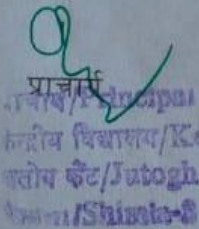 प्राचार्य
प्राचार्य/Principal
केन्द्रीय विद्यालय/K
जतोग कैंट/Jutogh
/Shimla-